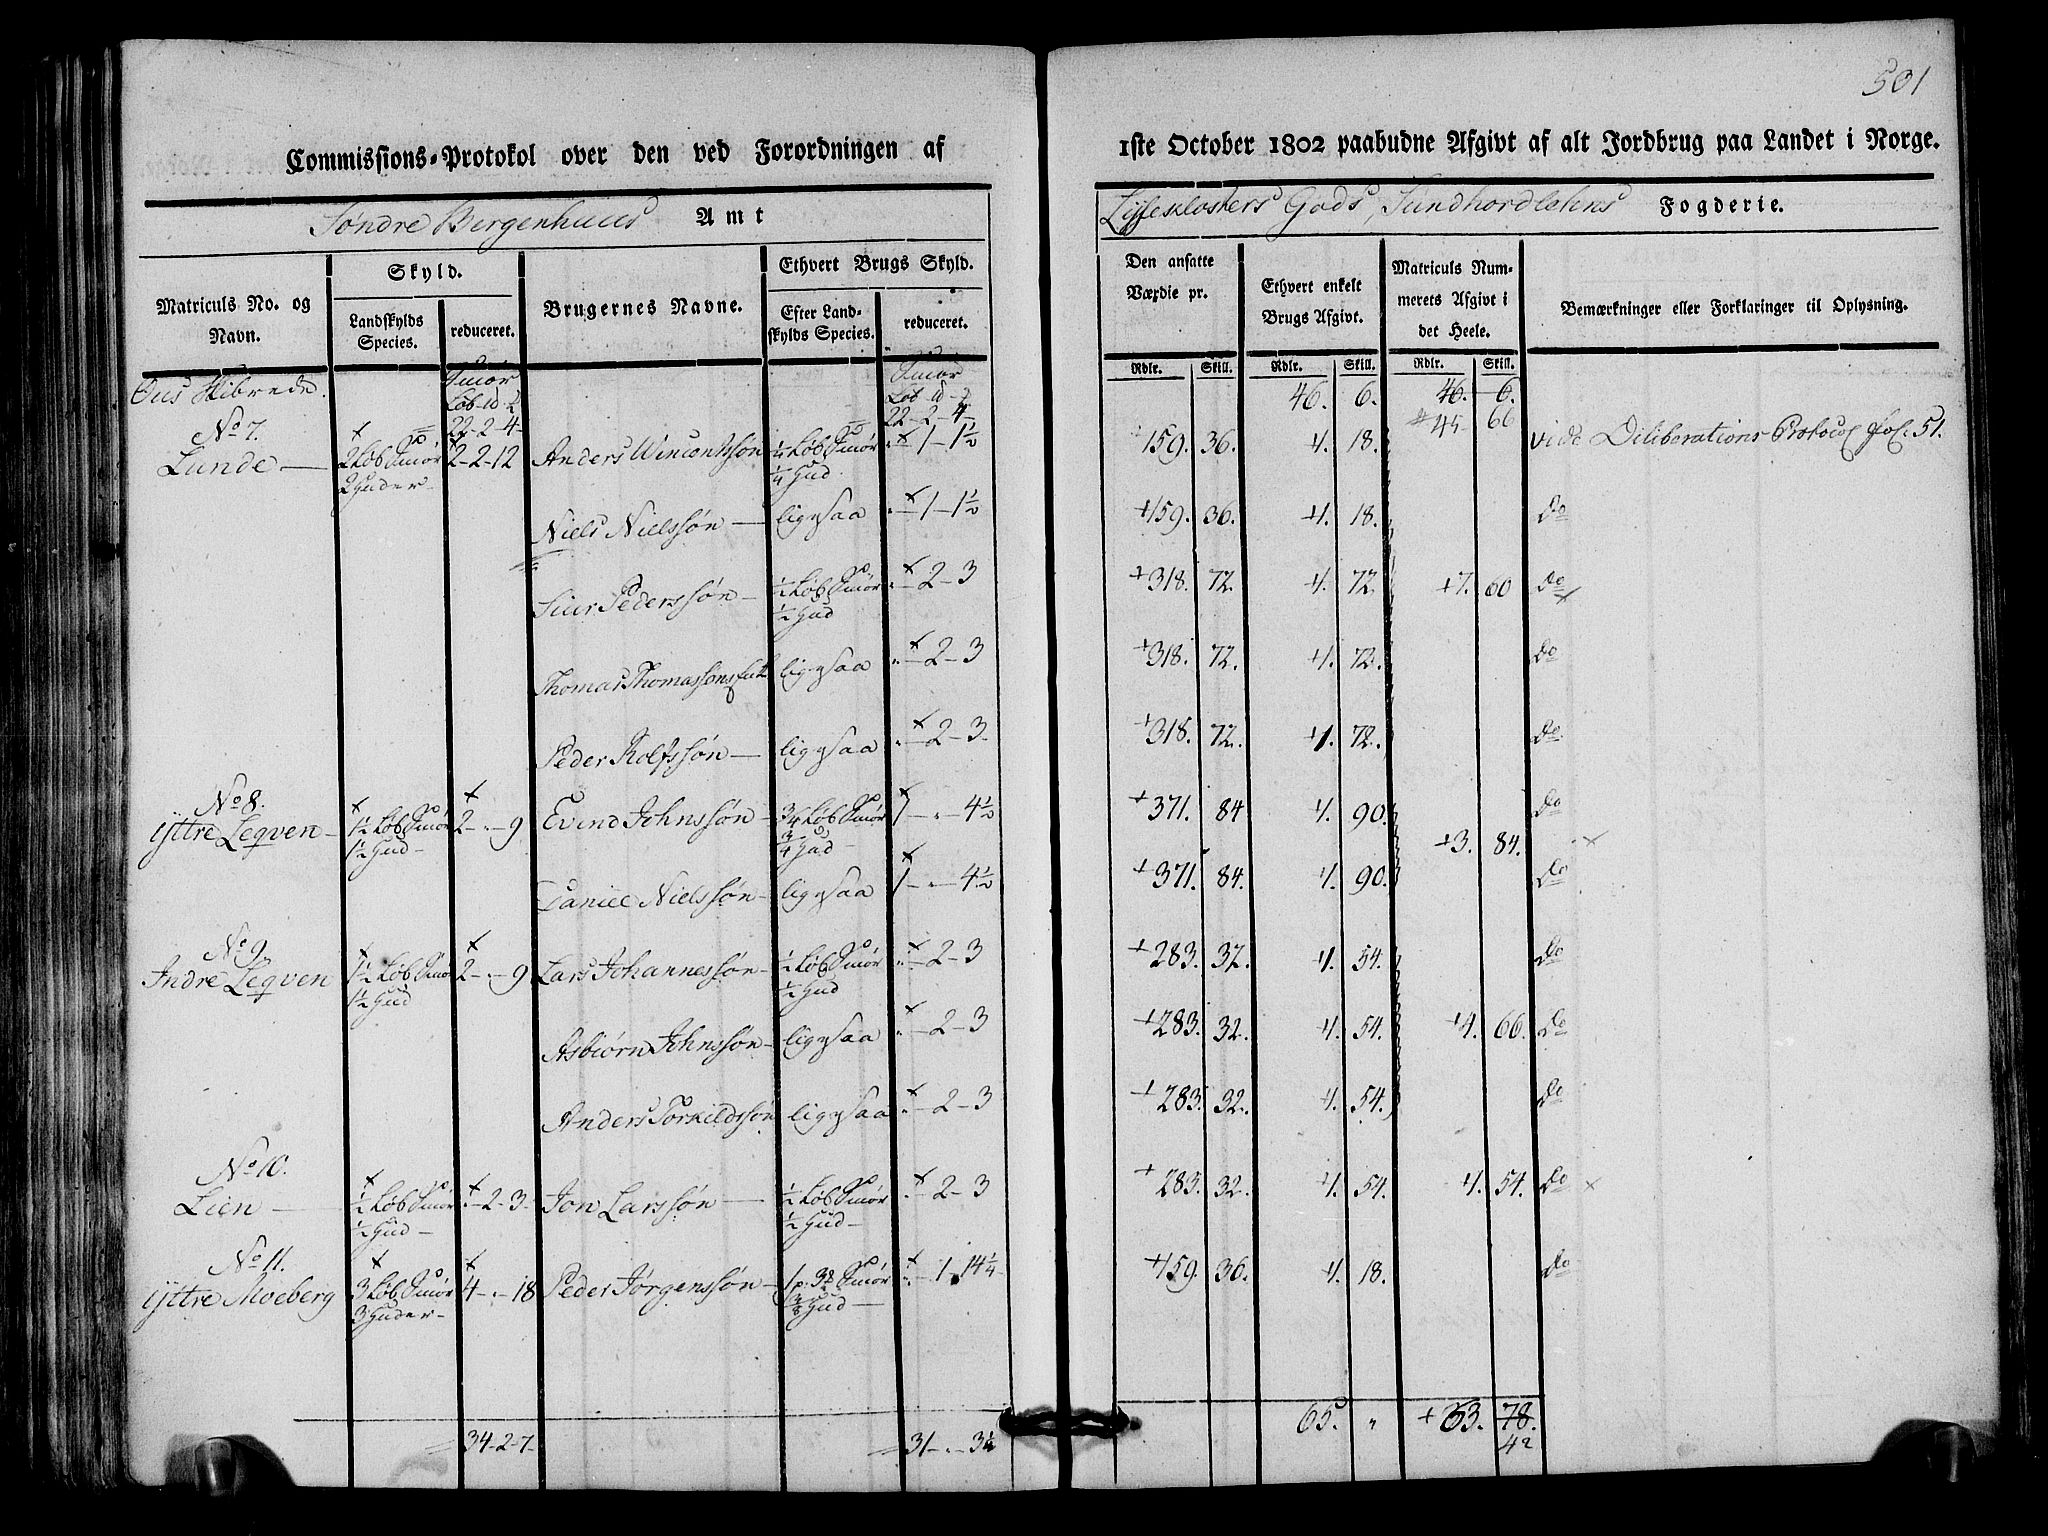 501
Commissions-Protokol over den ved Forordningen af
1ste October 1802 paabudne Afgivt af alt Jordbrug paa Landet i Norge.
Søndre Bergenhuus Amt
Lyseklosters Gods, Sundhordlehns Fogderie.
Matriculs No. og Navn.
Skyld.
Landskylds Species.
reduceret.
Brugernes Navne.
Ethvert Brugs Skyld.
Efter Landskylds Species.
reduceret.
Den ansatte Værdie pr.
Ethvert enkelt Brugs Afgivt.
Matriculs Nummerets Afgivt i det Heele.
Bemærkninger eller Forklaringer til Oplysning.
Rdlr. Skill. Rdlr. Skill. Rdlr. Skill.
Ous Skibrede. Smør Løb Smør Løb 46. 6. 46. 6.
22-2-4 22-2-4 45 66
No 7.
Lunde — 2 Løb Smør 2-2-12 Anders Wincentssøn ¼ Løb Smør "-1-1½ 159. 36. 1. 18. vide Deliberations Protocol fol. 51.
2 Huder ¼ Hud
Niels Nielssøn — ligesaa "-1-1½ +159. 36. +1. 18. Do
Siur Pederssøn — ½ Løb Smør "-2-3 +318. 72. +1. 72. +7. 60 Do
½ Hud
Thomas Thomassøns ligesaa "-2-3 +318. 72. +1. 72. Do
Peder Rolfssøn — ligesaa "-2-3. +318. 72. +1. 72. Do
No 8.
Yttre Legven — 1½ Løb Smør 2-"-9 Evind Johnssøn — ¾ Løb Smør 1-"-4½ +371. 84 1. 90. +3. 84. Do
1½ Hud — ¾ Hud —
Daniel Nielssøn — ligesaa 1-"-4½ +371. 84. 1. 90. Do
No 9.
Indre Legven 1½ Løb Smør 2-"-9 Lars Johannessøn — ½ Løb Smør "-2-3 +283. 32. 1. 54. Do
1½ Hud ½ Hud
Asbiørn Johnssøn — ligesaa "-2-3 +283. 32. 1. 54. +4. 66. Do
Anders Torkildssøn ligesaa "-2-3 +283. 32. 1. 54. Do
No 10.
Lien — ½ Løb Smør "-2-3. Jon Larssøn — ½ Løb Smør "-2-3 +283. 32. 1. 54. 1. 54. Do
½ Hud — ½ Hud —
No 11.
Yttre Moeberg 3 Løb Smør 4-"-18 Peder Jørgenssøn — 1 p. 3 Smør "-1-14¼ +159. 36. 1. 18. Do
3 Huder — ⅜ Hud —
34-2-7. 31-"-3¼ 65. " +63. 78.
42